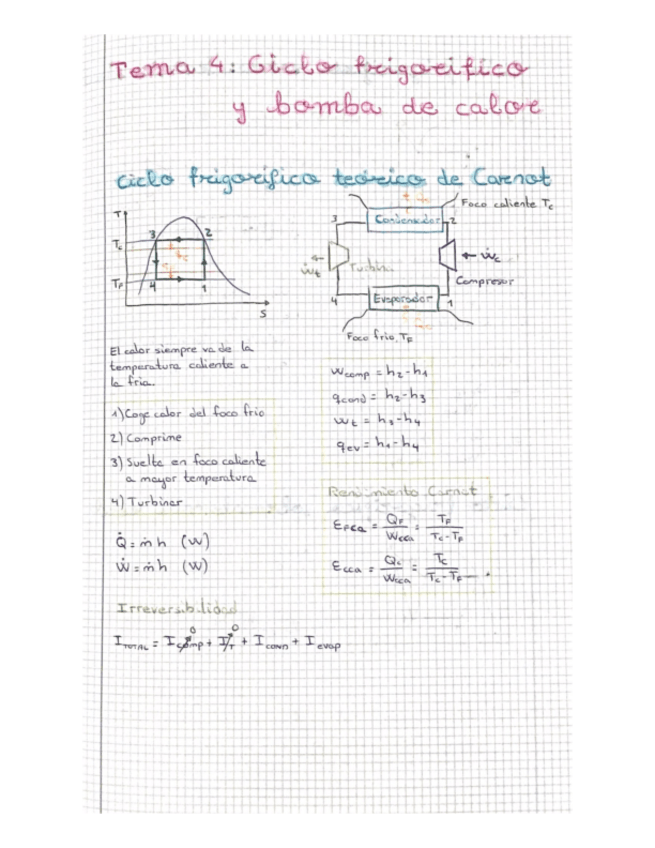 Tema 4: Ciclo frigorífico
y bomba de calor
Ciclo frigorífico teórico de Carnot
T
Tc
TF
3
2
4
1
S
Foco caliente Tc
3
Condensador
2
Ẇt
Turbin
← Ẇc
Compresor
4
Evaporador
1
Foco frío, TF
El calor siempre va de la
temperatura caliente a
la fría.
1) Coge calor del foco frío
2) Comprime
3) Suelta en foco caliente
a mayor temperatura
4) Turbinar
Q̇ = ṁ h (W)
Ẇ = ṁ h (W)
Wcomp = h2-h1
qcond = h2-h3
Wt = h3-h4
qev = h1-h4
Rendimiento Carnot
εFCA = QF/WCCA = TF/(Tc-TF)
εCCA = Qc/WCCA = Tc/(Tc-TF)
Irreversibilidad
ITOTAL = Icomp + IT + ICOND + Ievap
0 0